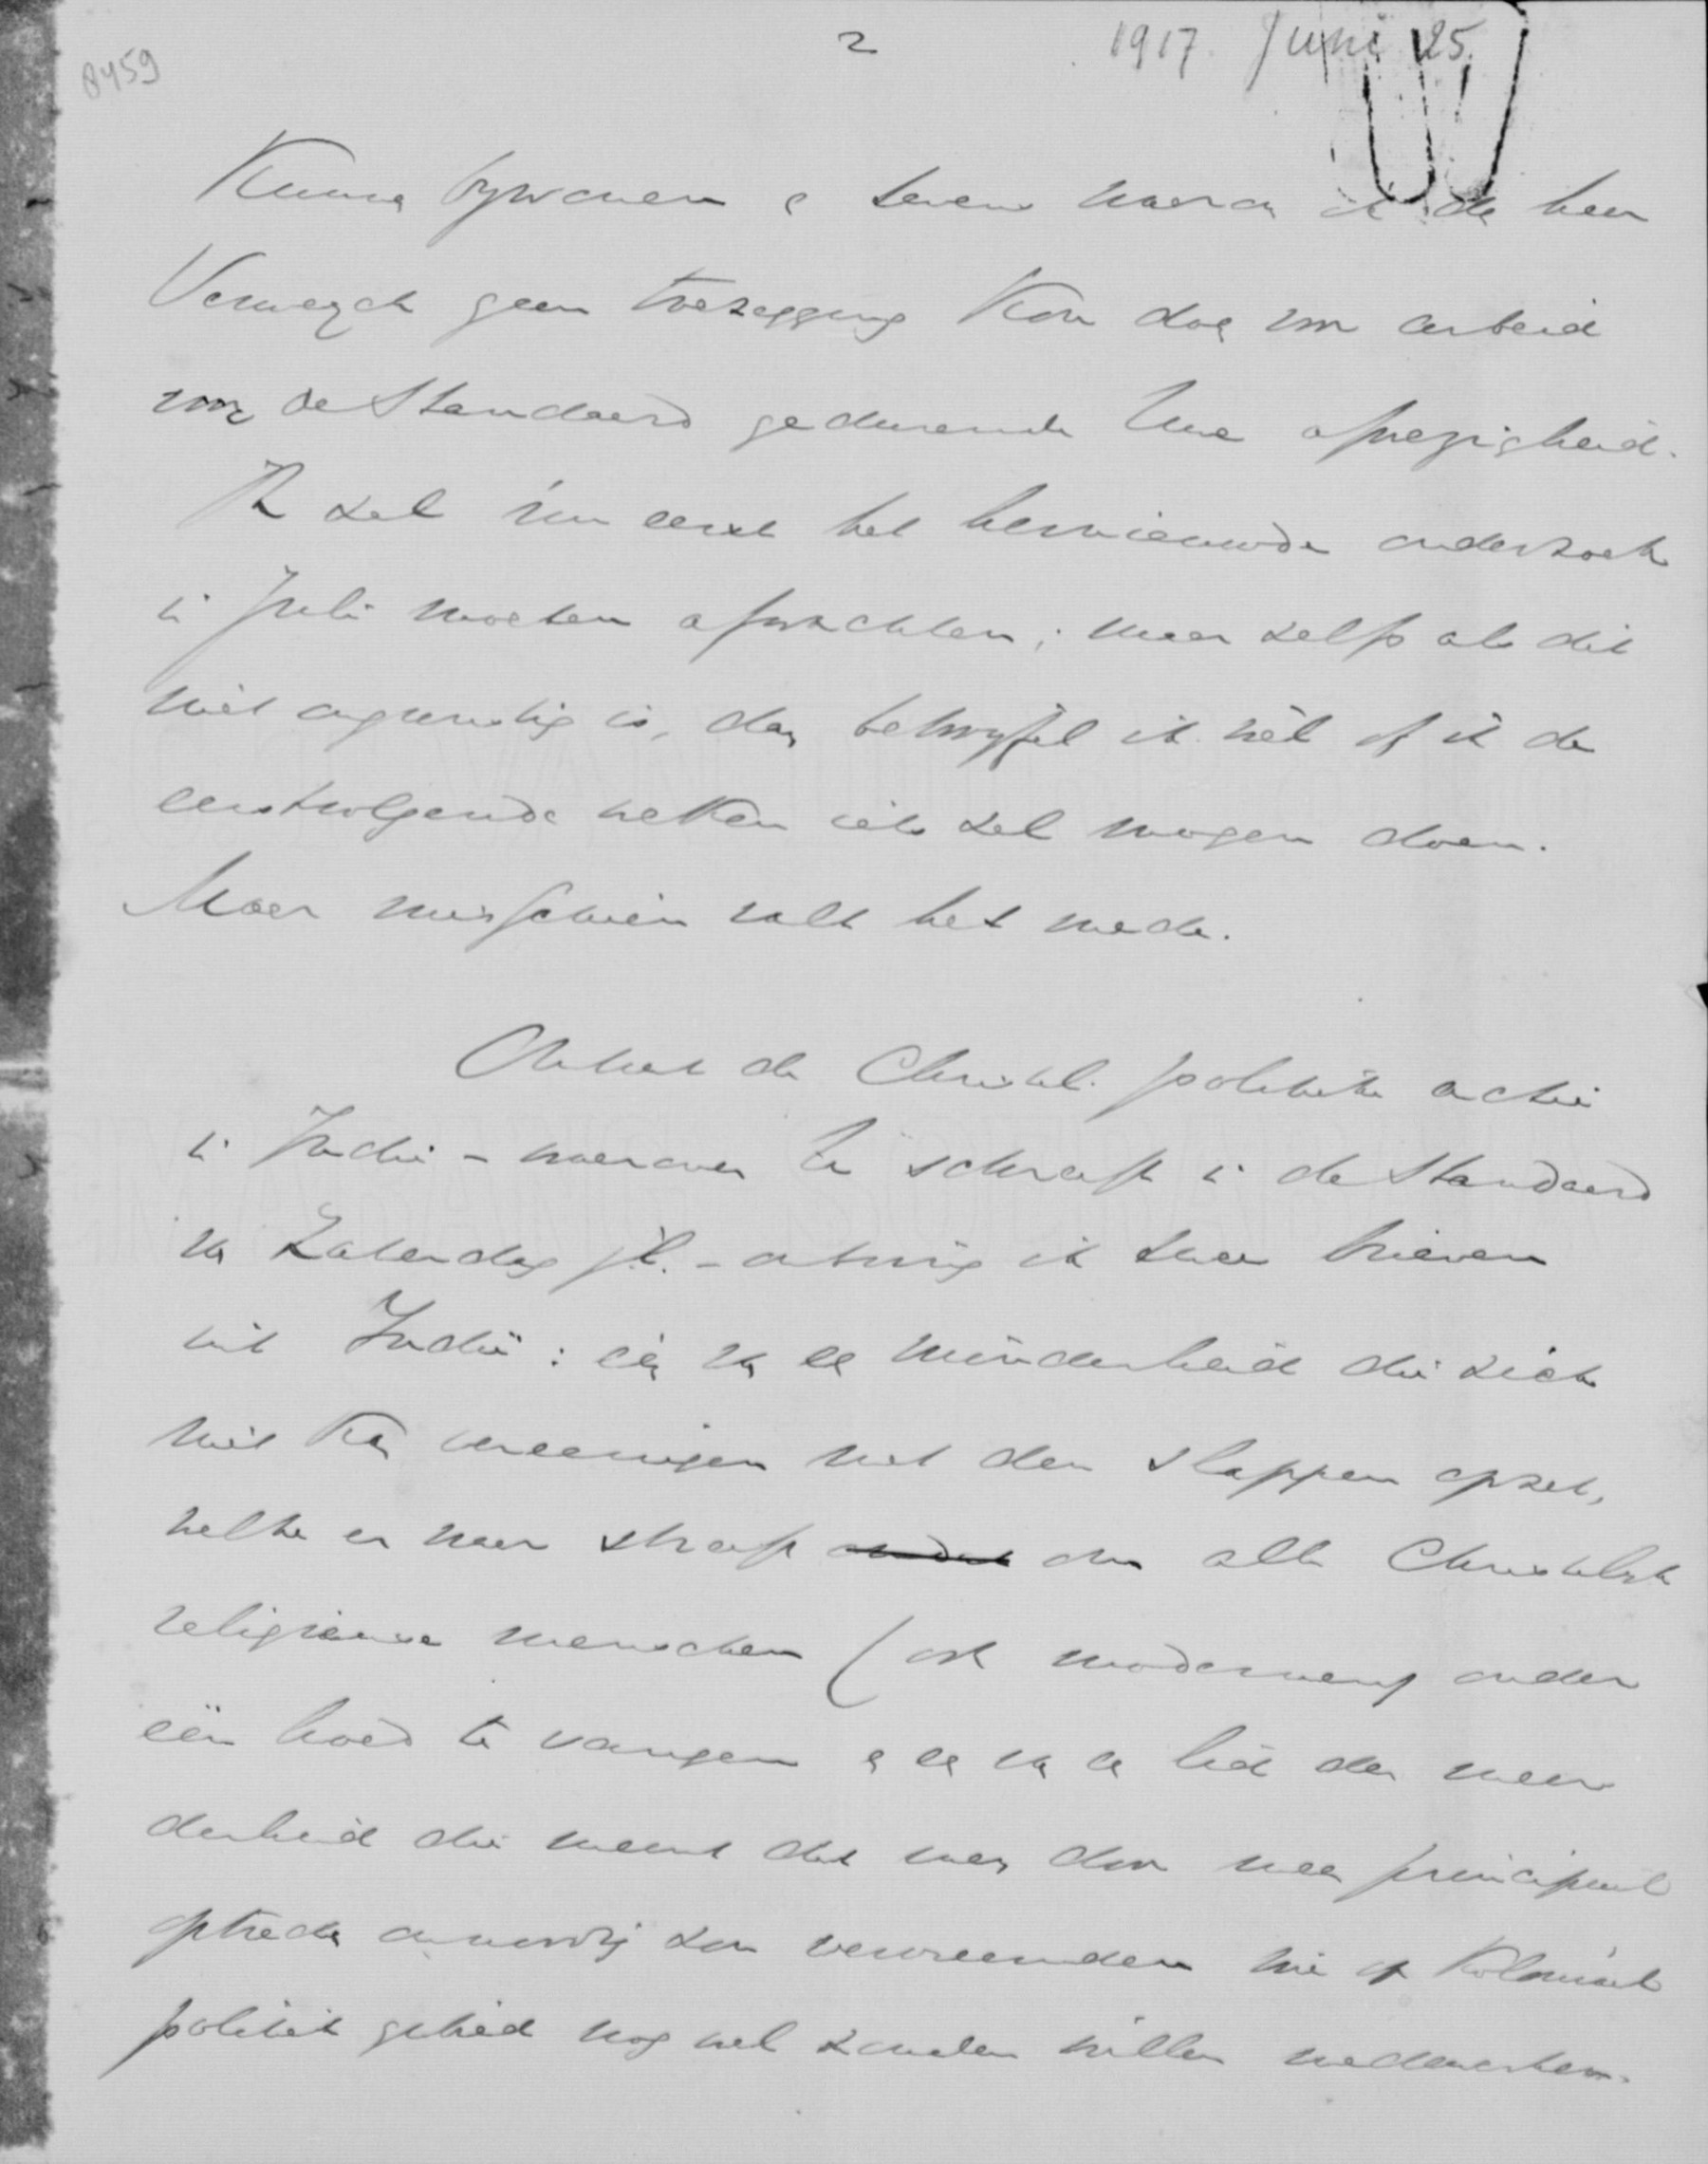 8459
2
1917. Juni 25.
Kunne bywonen & tevens waarom ik de heer
geen toezegging kon doen voor arbeid
voor de Standaard gedurende Uwe afwezigheid.
Ik zal nu eerst het hernieuwde onderzoek
in Juli moeten afwachten; maar zelfs als dit
niet ongunstig is, dan betwyfel ik het of ik de
eerstvolgende weken iets zal mogen doen.
Maar misschien valt het mede.
Omtrent de Christel. politieke actie
in Indië - waarover U schreeft in de Standaard
van Zaterdag j.l. - ontving ik twee brieven
uit Indië: één van een minderheid die zich
niet kan vereenigen met den slappen opzet,
welke er naar streeft om alle Christelyk
religieuse menschen (ook modernen) onder
één hoed te vangen & een van een lid der meer
derheid die meent dat men door meer principieel
optreden onnoodig zou vervreemden wie op koloniaal
politiek gebied nog wel zouden willen medewerken.